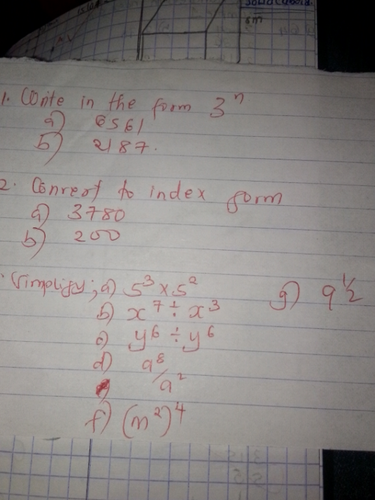 6m
1. Write in the form 3ⁿ
a) 6561
b) 2187.
2. Convert to index form
a) 3780
b) 200
Simplify; a) 5³ x 5²
b) x⁷ ÷ x³
c) y⁶ ÷ y⁶
d) a⁸/a²
f) (m²)⁴
g) 9½